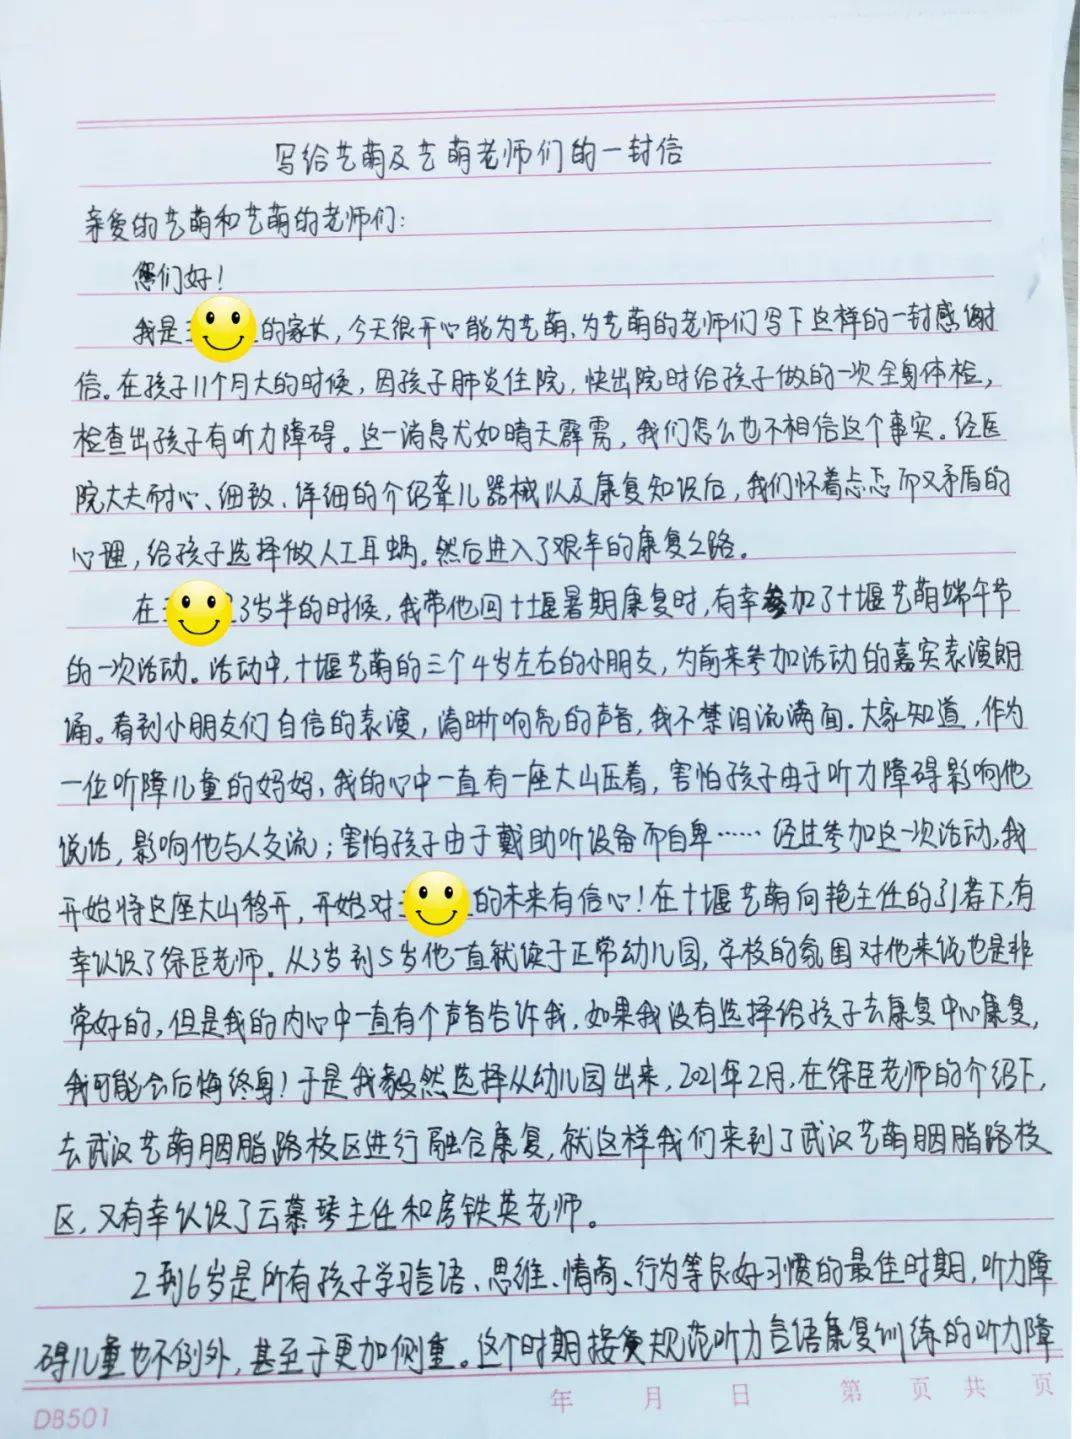 写给艺萌及艺萌老师们的一封信
亲爱的艺萌和艺萌的老师们：
您们好！
我是 的家长，今天很开心能为艺萌，为艺萌的老师们写下这样的一封感谢
信。在孩子11个月大的时候，因孩子肺炎住院，快出院时给孩子做的一次全身体检，
检查出孩子有听力障碍。这一消息犹如晴天霹雳，我们怎么也不相信这个事实。经医
院大夫耐心、细致、详细的介绍牵儿器械以及康复知识后，我们怀着忐忑而又矛盾的
心理，给孩子选择做人工耳蜗。然后进入了艰辛的康复之路。
在 3岁半的时候，我带他回十堰暑期康复时，有幸参加了十堰艺萌端午节
的一次活动。活动中，十堰艺萌的三个4岁左右的小朋友，为前来参加活动的嘉宾表演朗
诵。看到小朋友们自信的表演，清晰响亮的声音，我不禁泪流满面。大家知道，作为
一位听障儿童的妈妈，我的心中一直有一座大山压着，害怕孩子由于听力障碍影响他
说话，影响他与人交流；害怕孩子由于戴助听设备而自卑……经过参加这一次活动，我
开始将这座大山移开，开始对 的未来有信心！在十堰艺萌向艳主任的引荐下，有
幸认识了徐臣老师。从3岁到5岁他一直就读于正常幼儿园，学校的氛围对他来说也是非
常好的，但是我的内心中一直有个声音告诉我，如果我没有选择给孩子去康复中心康复，
我可能会后悔终身！于是我毅然选择从幼儿园出来，2021年2月，在徐臣老师的介绍下，
去武汉艺萌胭脂路校区进行融合康复，就这样我们来到了武汉艺萌胭脂路校
区，又有幸认识了云慕琴主任和房铁英老师。
2到6岁是所有孩子学习言语、思维、情商、行为等良好习惯的最佳时期，听力障
碍儿童也不例外，甚至于更加侧重。这个时期接受规范听力言语康复训练的听力障
年 月 日 第 页 共 页
DB501